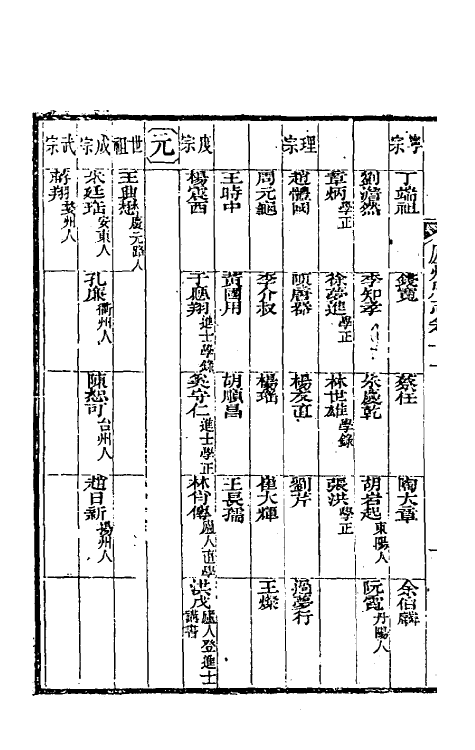 寧宗 丁端祖 錢寬 蔡任 陶大章 余伯麟
劉澹然 季知孝 朱慶乾 胡君起東陽人 阮霄丹陽人
章炳學正 徐夢進學正 林世雄學錄 張洪學正
理宗 趙體國 項唐裔 楊友直 劉芹 馮夢行
周元龜 季介叔 楊瑤 崔大輝 王燦
王時中 黃國用 胡順昌 王長孺
度宗 楊宸酉 于應翔進士學錄 吳守仁進士學正 林 處人直學 洪戊處人登進士講書
元
世祖 王 懋慶元路人
成宗 朱廷 安東人 孔廉衢州人 陳恕可台州人 趙日新揚州人
武宗 蔣翔婺州人